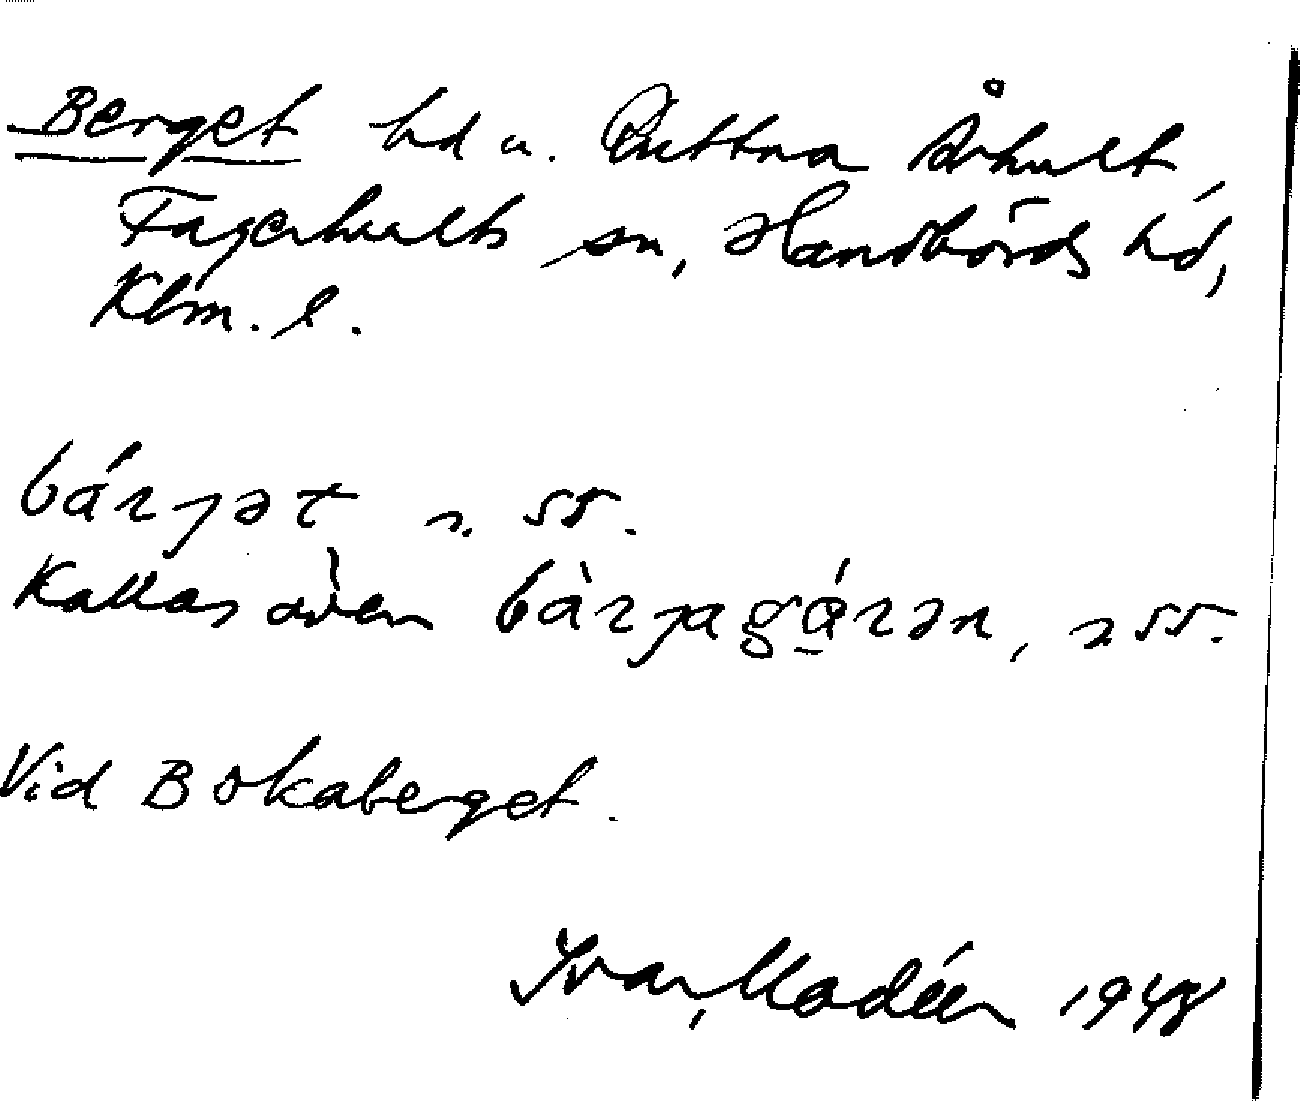 Berget hd u. Åkult,
Fagerhults sn, Handbörds hd,
Klm. l.
bárjət n. ss.
Kallas även bàrjagárən, n ss.
Vid Bokaberget.
Ivar Modéer 1948